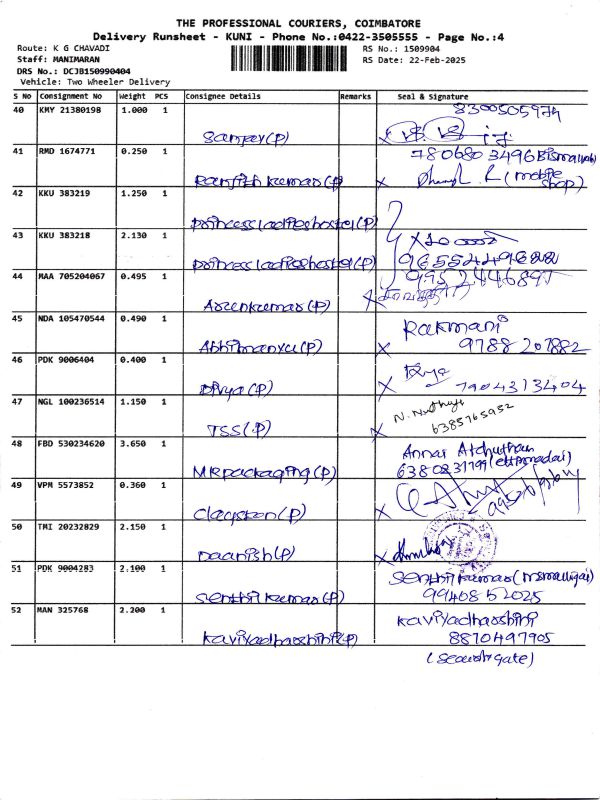 THE PROFESSIONAL COURIERS, COIMBATORE
Delivery Runsheet - KUNI - Phone No.:0422-3505555 - Page No.:4
Route: K G CHAVADI
RS No.: 1509904
Staff: MANIMARAN
RS Date: 22-Feb-2025
DRS No.: DCJB150990404
Vehicle: Two Wheeler Delivery
S No Consignment No Weight PCS Consignee Details Remarks Seal & Signature
40 KMY 21380198 1.000 1
8300505974
Sanjay(P)
41 RMD 1674771 0.250 1
7806803496
Ranjith kumar(P) x (mobile shop)
42 KKU 383219 1.250 1
princess ladies hostel(P)
43 KKU 383218 2.130 1
princess ladies hostel(P)
44 MAA 705204067 0.495 1
9952446897
Arunkumar(P) x
45 NDA 105470544 0.490 1
Rakmani
Abhimanyu(P) x 9788207882
46 PDK 9006404 0.400 1
Divya
Divya(P) x 7904313404
47 NGL 100236514 1.150 1
TSS(P) x 6385765952
48 FBD 530234620 3.650 1
Annai
MRpackaging(P)
49 VPM 5573852 0.360 1
Clayston(P) x
50 TMI 20232829 2.150 1
Daanish(P) x
51 PDK 9004283 2.100 1
Senthil kumar
Senthil kumar(P) 9940852025
52 MAN 325768 2.200 1
Kaviyadharshini
Kaviyadharshini(P) 8870497905